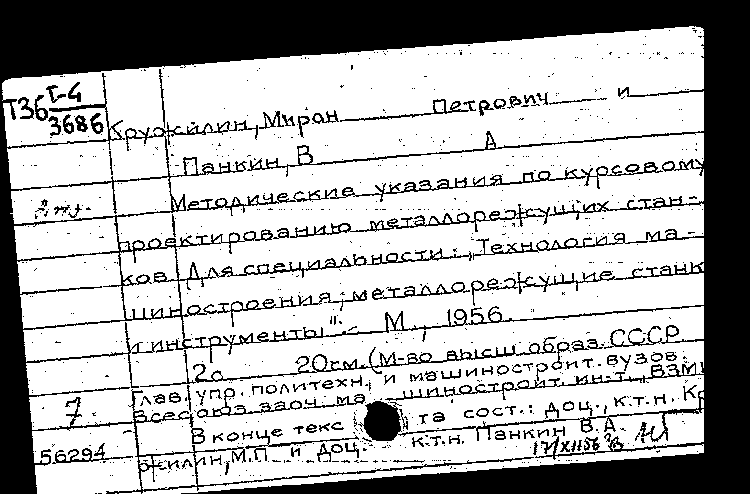 Т36 Т-4
3686
Кружилин, Мирон Петрович и
Панкин, В А
2 т.
Методические указания по курсовому
проектированию металлорежущих стан-
ков Для специальности: „Технология ма-
шиностроения, металлорежущие станк
и инструменты". - М, 1956.
2с 20см. (М-во высш образ. СССР
Глав. упр. политехн. и машиностроит. вузов.
Всесоюз заоч. ма шиностроит. ин-т,
7.
В конце текс та сост.: доц., к.т.н. Кр
56294
жилин, М.П. и доц. к.т.н. Панкин В.А.